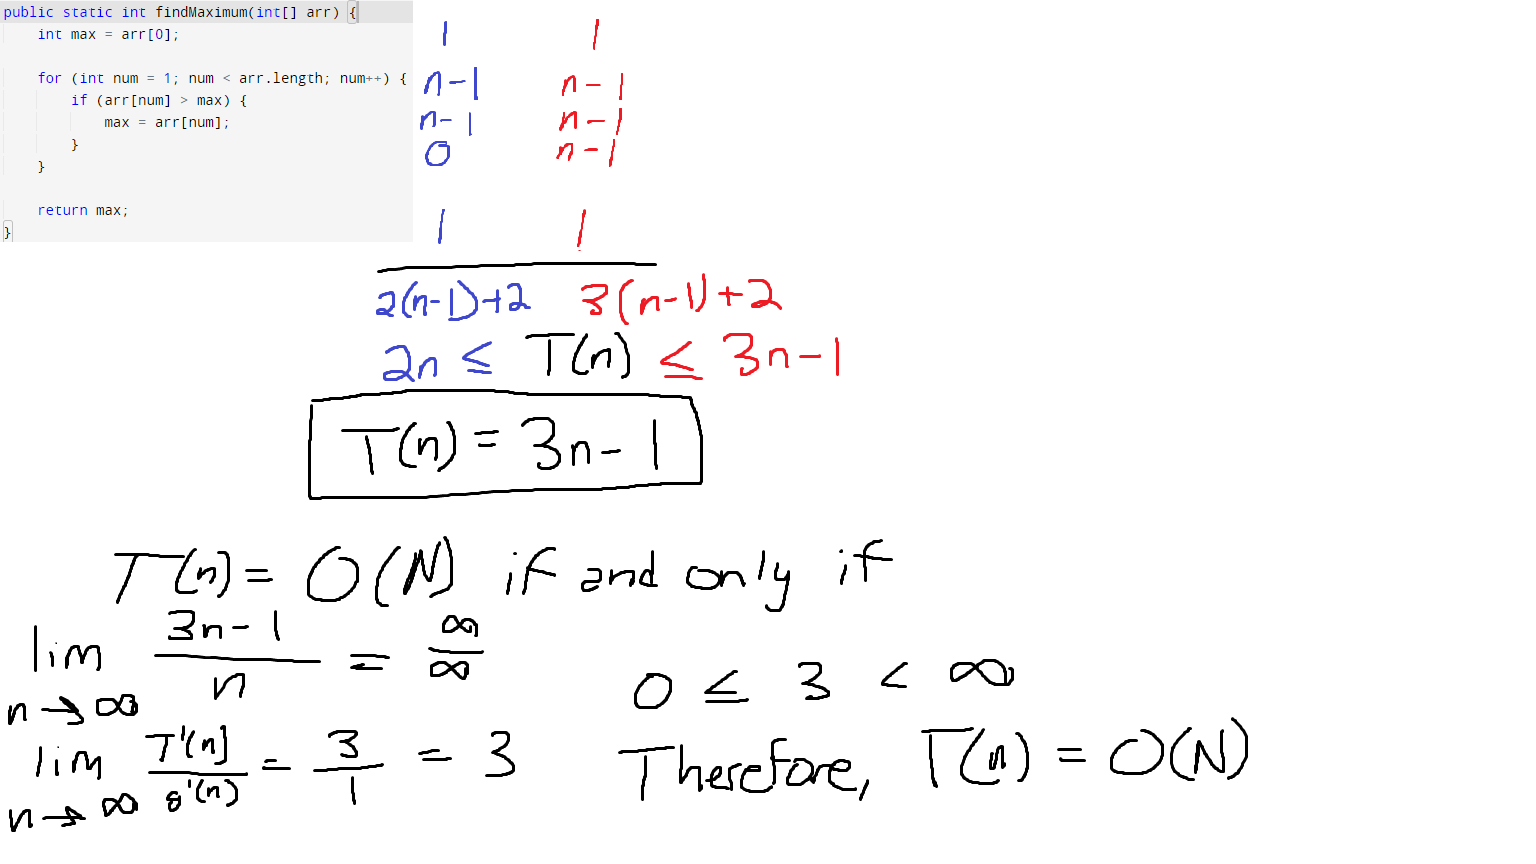 public static int findMaximum(int[] arr) {
int max = arr[0]; 1 1
for (int num = 1; num < arr.length; num++) { n-1 n-1
if (arr[num] > max) { n-1 n-1
max = arr[num]; 0 n-1
}
}
return max; 1 1
}
2(n-1)+2 3(n-1)+2
2n ≤ T(n) ≤ 3n-1
T(n) = 3n-1
T(n) = O(N) if and only if
lim n→∞ 3n-1 / n = ∞/∞
0 ≤ 3 < ∞
lim n→∞ T'(n) / g'(n) = 3/1 = 3
Therefore, T(n) = O(N)